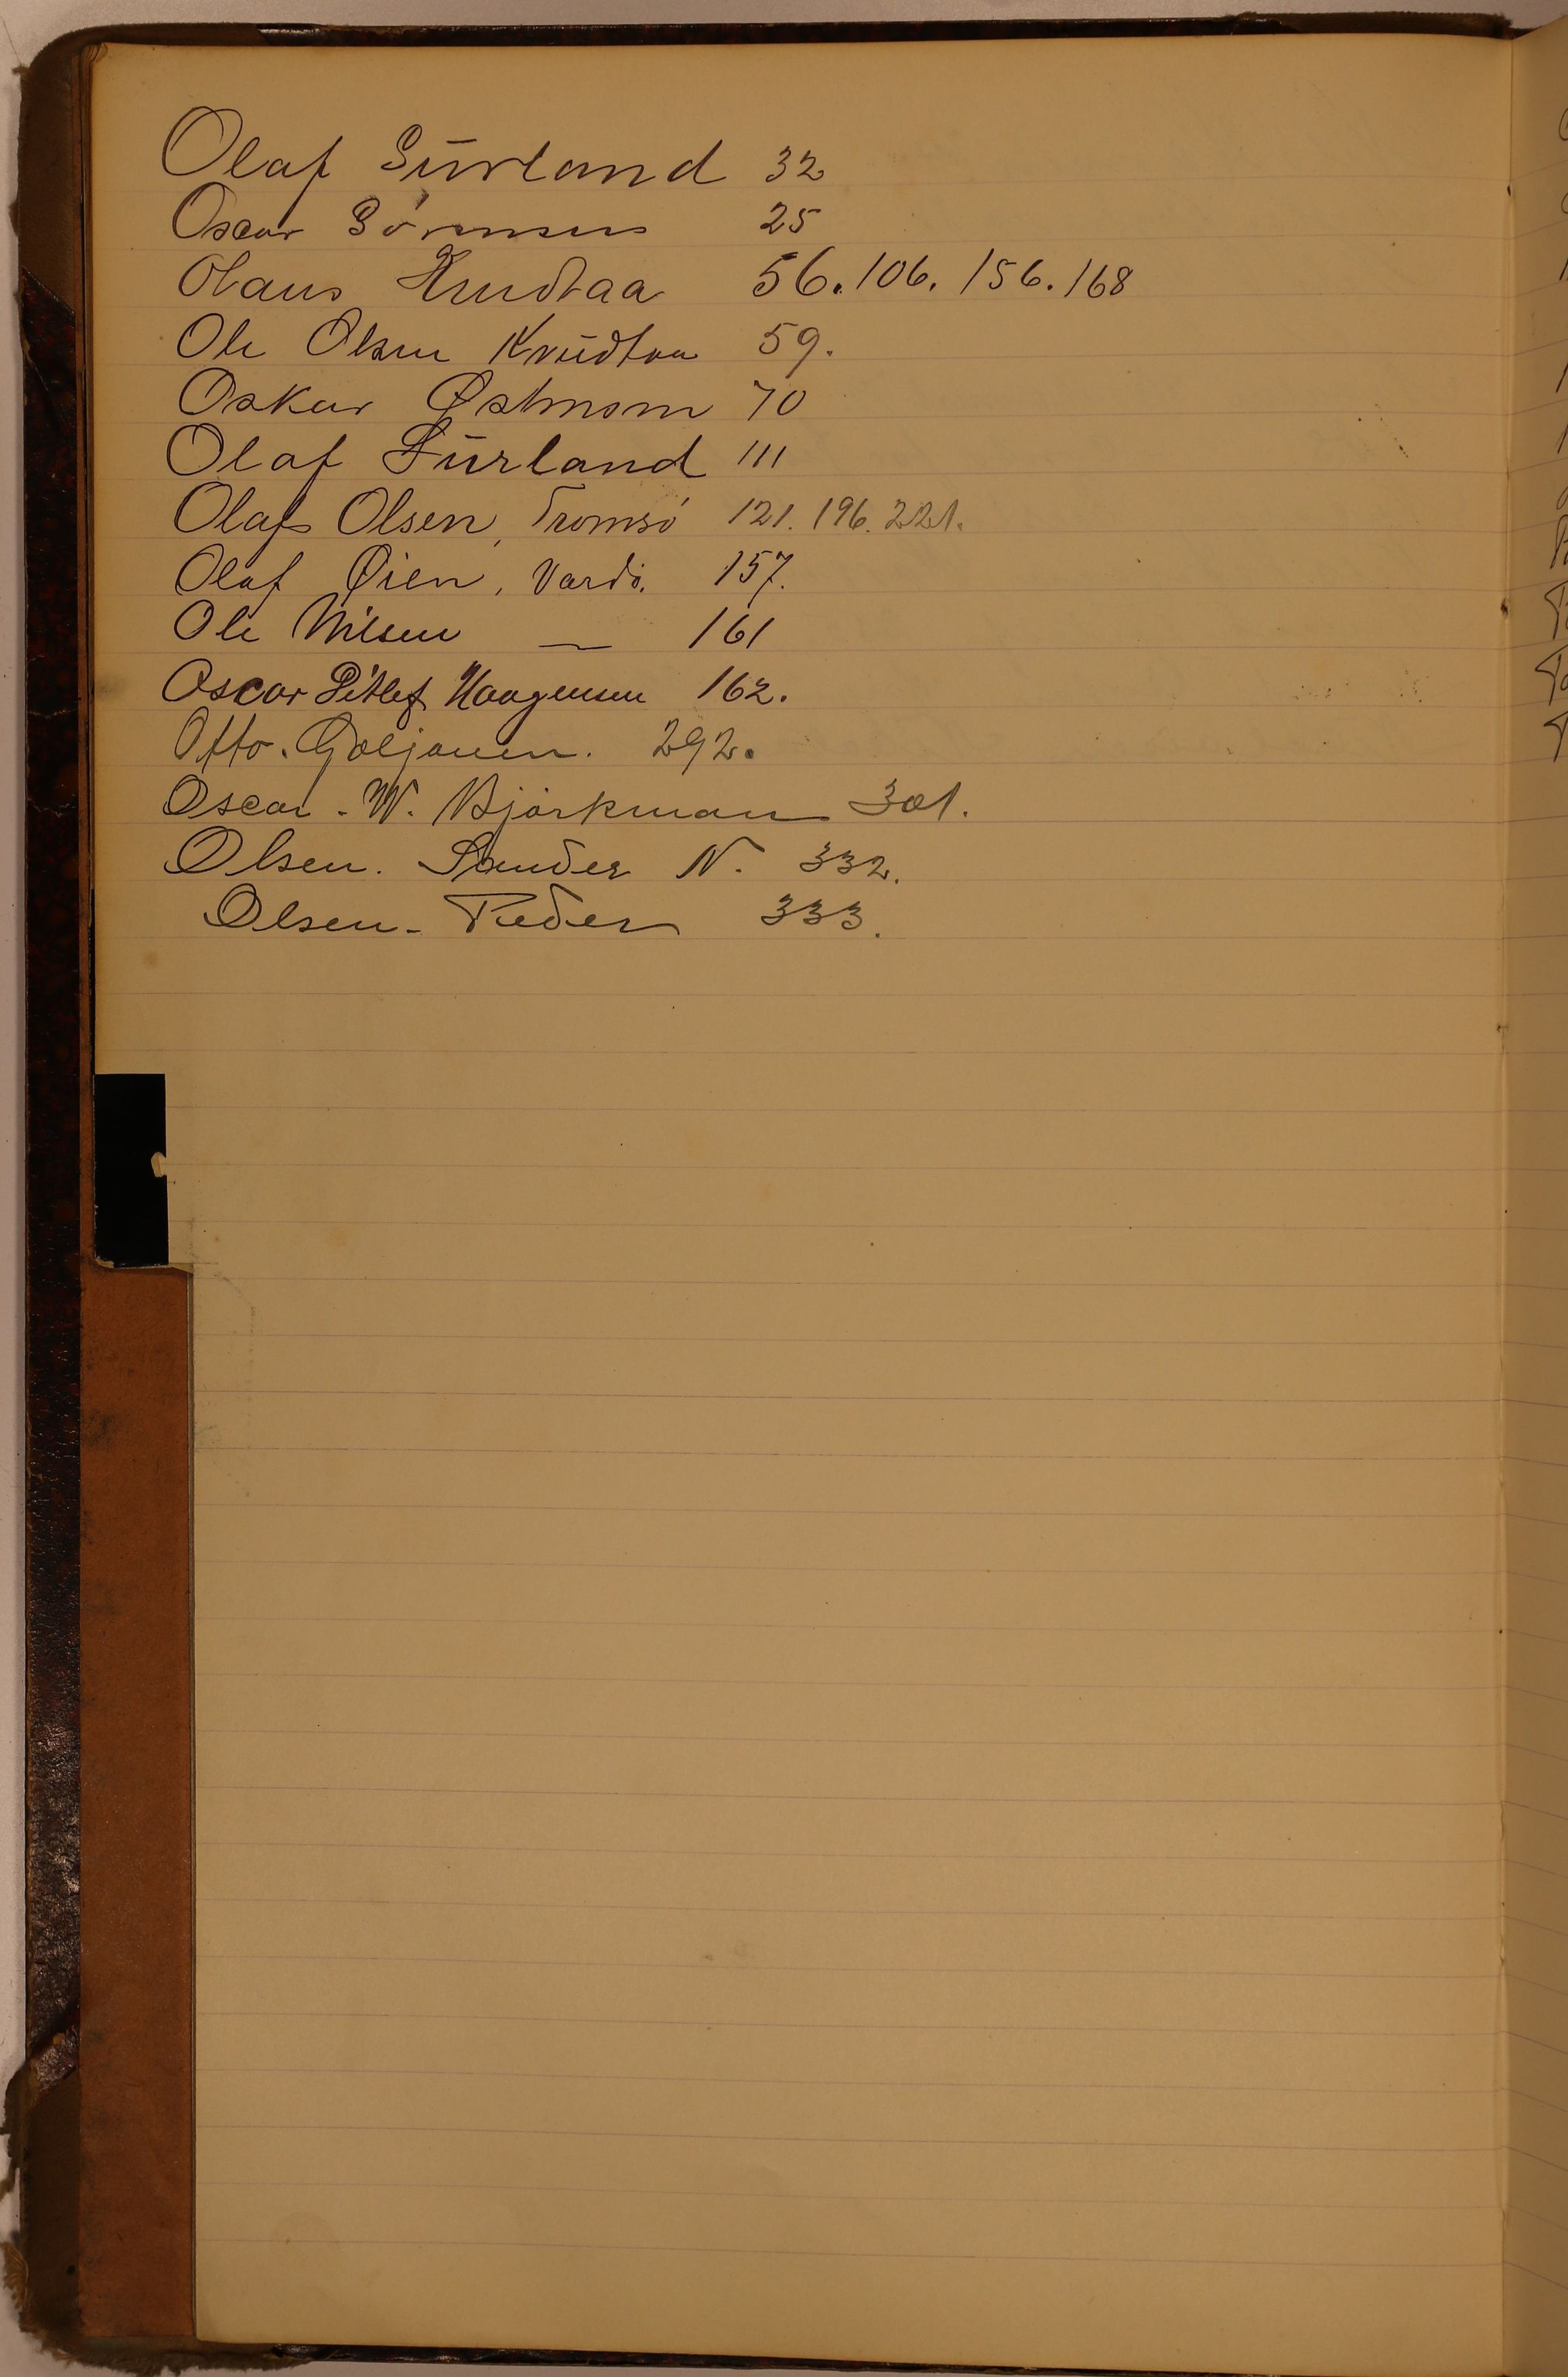 Olaf Sürland 32
Oscar Sörensen 25
Olaus Knudtaa 56. 106. 156. 168
Ole Olsen Knudtaa 59.
Oskar Østmom 70
Olaf Sürland 111
Olaf Olsen, Tromsö 121. 196. 221.
Olaf Øien, Vardö. 157.
Ole Nilsen — 161
Oscar Ditlef Haagensen 162.
Otto. 292.
Oscar. W. Björkman 301.
Olsen. Sander N. 332.
Olsen. Peder 333.